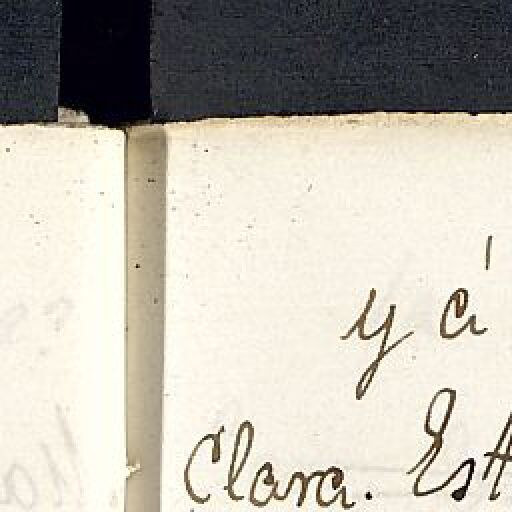 y á
Clara. Est